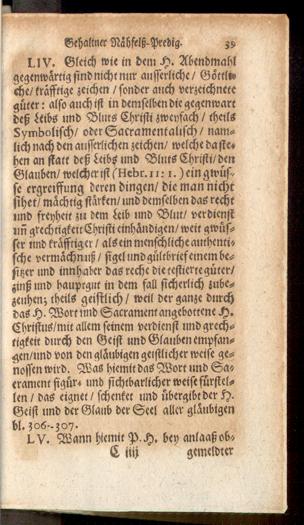 Gehaltner Nähfelß-Predig. 39
LIV. Gleich wie in dem H. Abendmahl
gegenwärtig sind nicht nur ausserliche / Göttli-
che / kräfftige zeichen / sonder auch verzeichnete
güter: also auch ist in demselben die gegenwart
deß Leibs und Bluts Christi zweyfach / theils
Symbolisch / oder Sacramentalisch / nam-
lich nach den ausserlichen zeichen / welche daste-
hen an statt deß Leibs und Bluts Christi / den
Glauben / welcher ist (Hebr. 11: 1.) ein gwüs-
se ergreiffung deren dingen / die man nicht
sihet / mächtig stärken / und demselben das recht
und freyheit zu dem Leib und Blut / verdienst
uñ grechtigkeit Christi einhändigen / weit gwüs-
ser und kräfftiger / als ein menschliche authenti-
sche vermächnuß / sigel und gültbrief einem be-
sitzer und innhaber das recht die testierte güter /
zinß und hauptgut in dem fall sicherlich zube-
zeuhen; theils geistlich / weil der ganze durch
das H. Wort und Sacrament angebottene H.
Christus / mit allem seinem verdienst und grech-
tigkeit durch den Geist und Glauben empfan-
gen / und von den gläubigen geistlicher weise ge-
nossen wird. Was hiemit das Wort und Sa-
crament figür- und sichtbarlicher weise fürstel-
len / das eignet / schenket und übergibt der H.
Geist und der Glaub der Seel aller gläubigen
bl. 306.-307.
LV. Wann hiemit P. H. bey anlaaß ob-
C iiij gemeldter